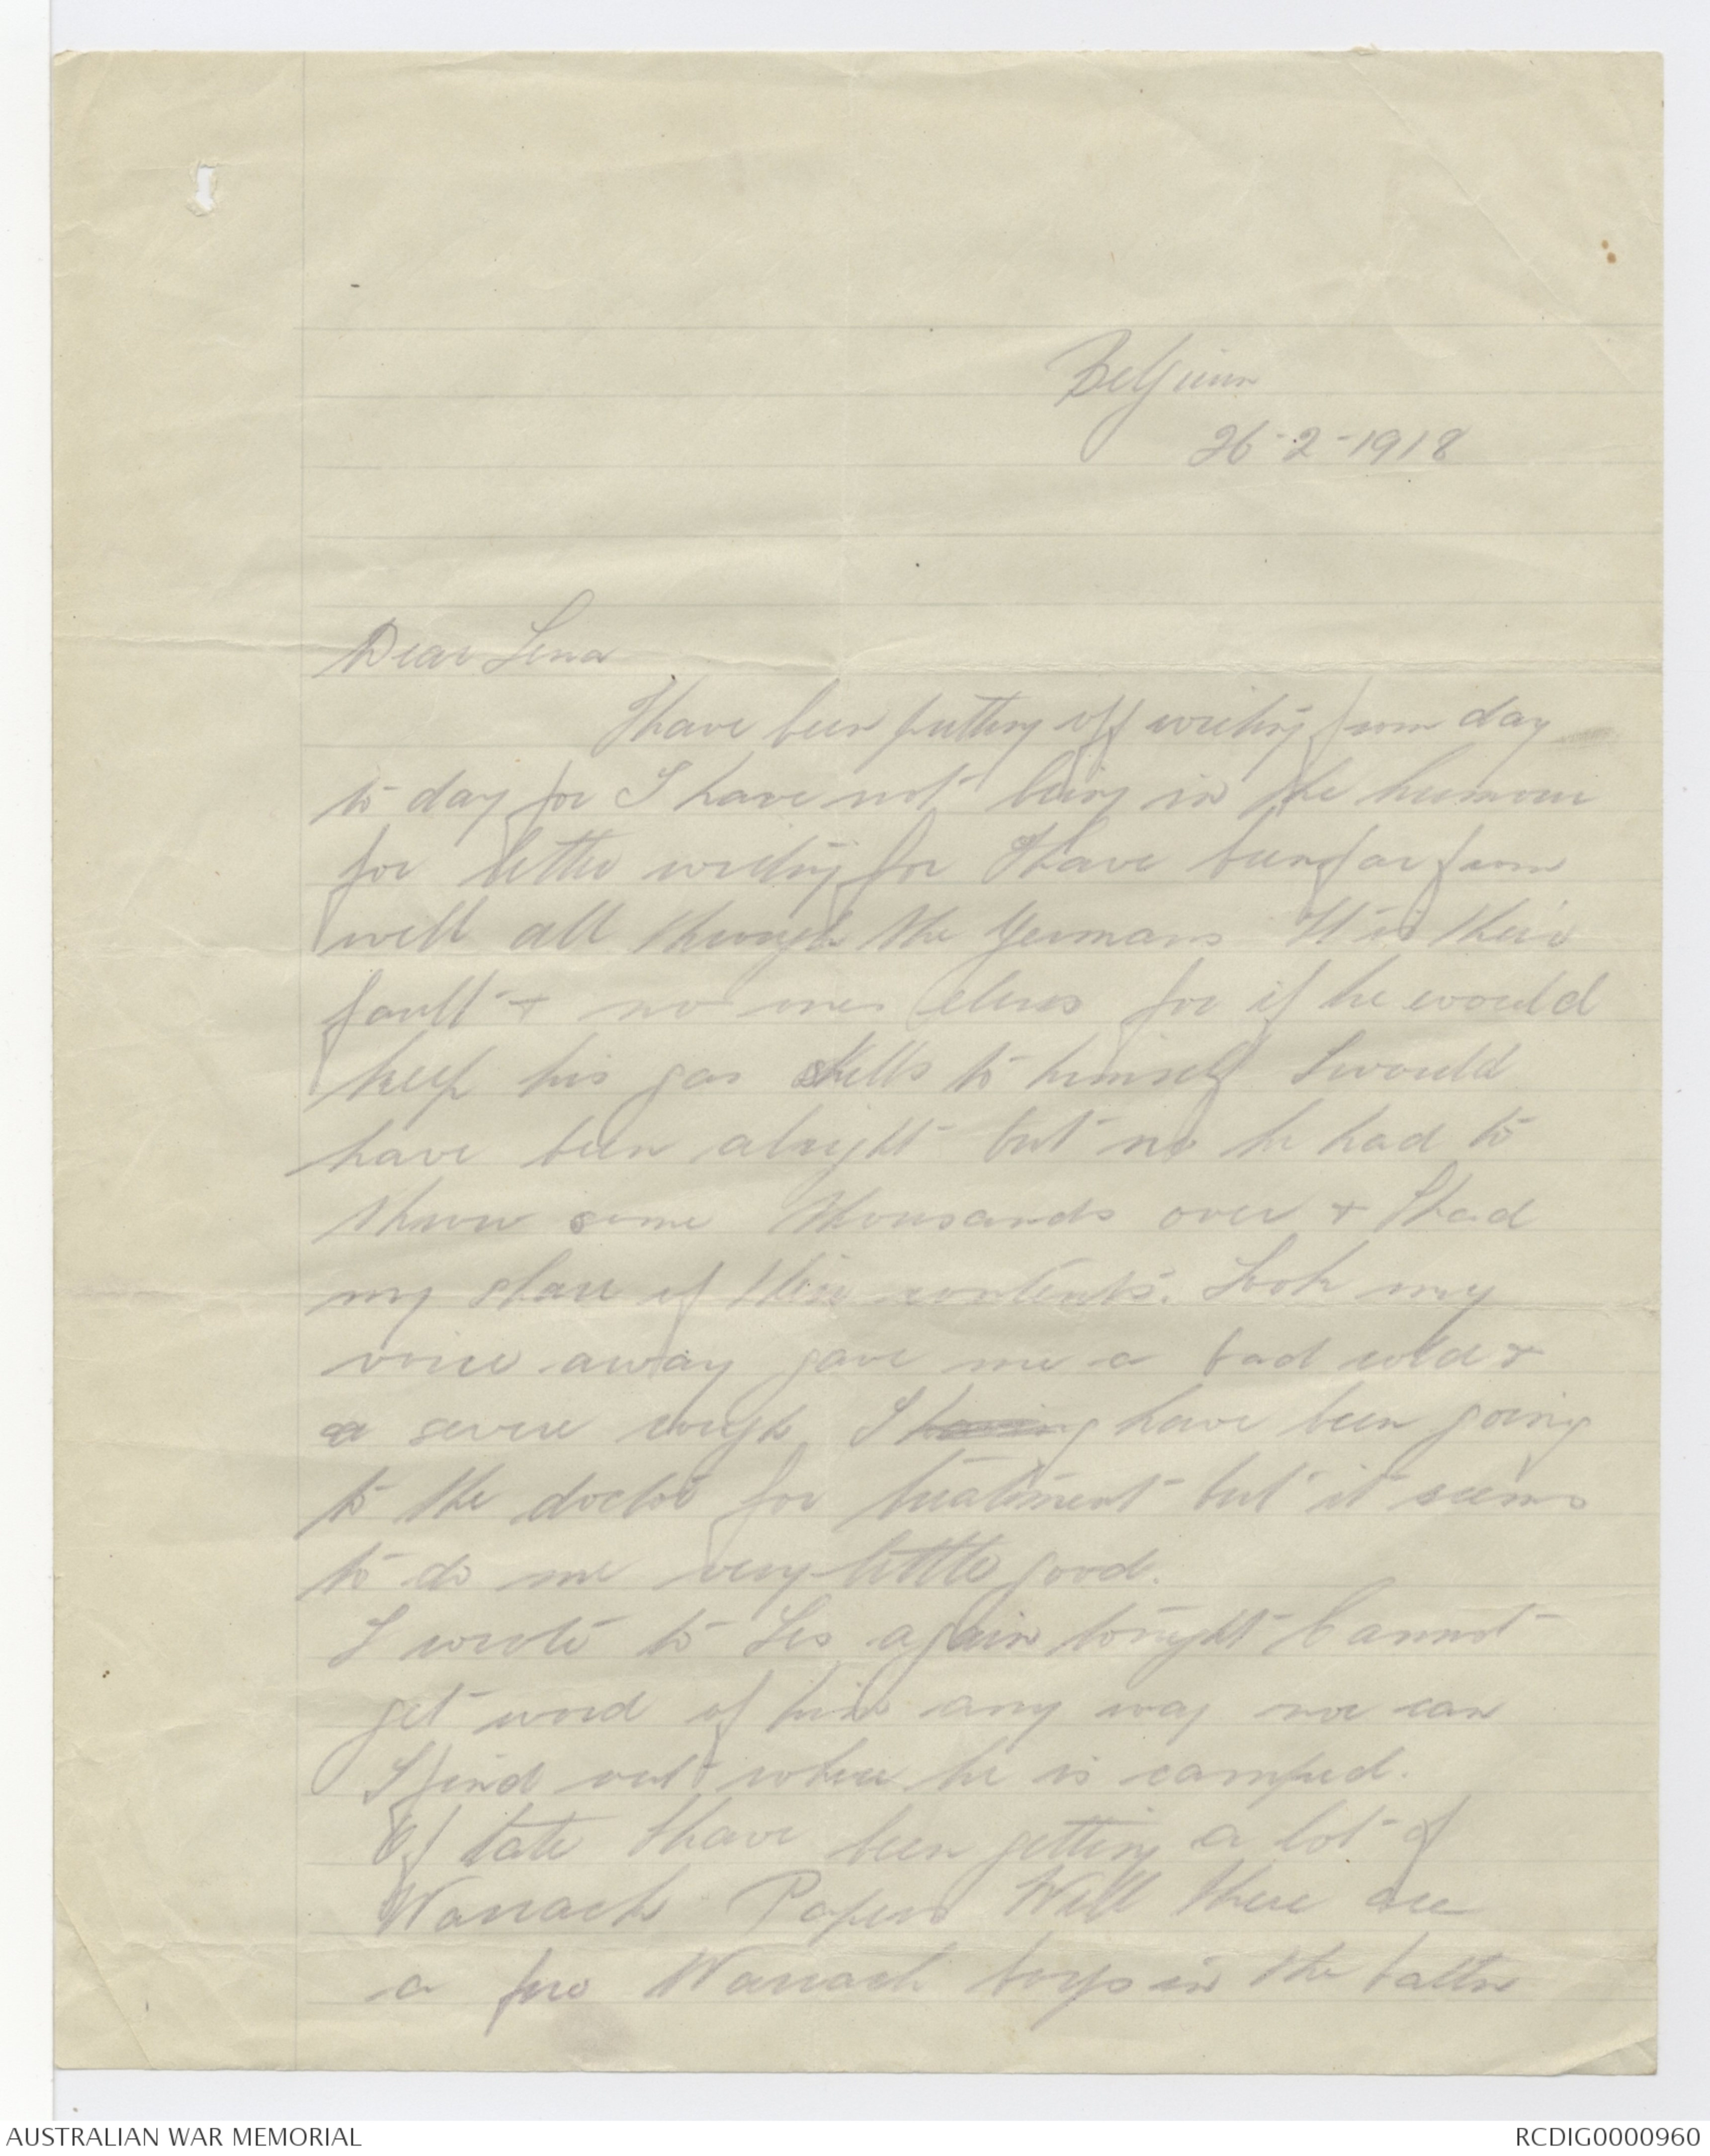 Belgium
26-2-1918
Dear Lena
I have been putting off writing from day
to day for I have not being in the humour
for letter writing for I have been far from
well all through the Germans It is their
fault + no ones elses for if he would
keep his gas shells to himself I would
have been alright but no he had to
throw some thousands over + I had
my share of their contents. Took my
voice away gave me a bad cold +
a severe cough I having have been going
to the doctor for treatment but it seems
to do me very little good.
I wrote to Les again tonight Cannot
get word of him any way nor can
I find out where he is camped.
Of late I have been getting a lot of
Warrack Papers Well there are
a few Warrack boys in the battn
AUSTRALIAN WAR MEMORIAL
RCDIG0000960